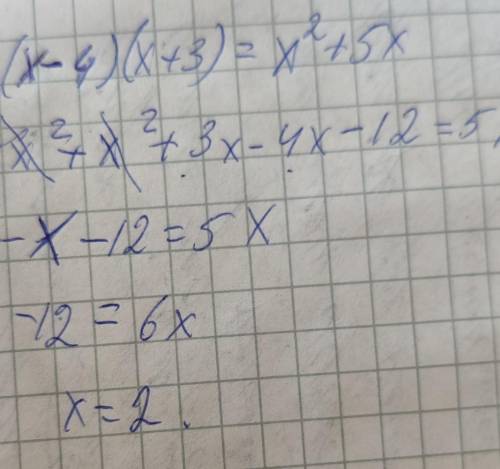 (x-4)(x+3)=x²+5x
-x²+x²+3x-4x-12=5
-x-12=5x
-12=6x
x=2.